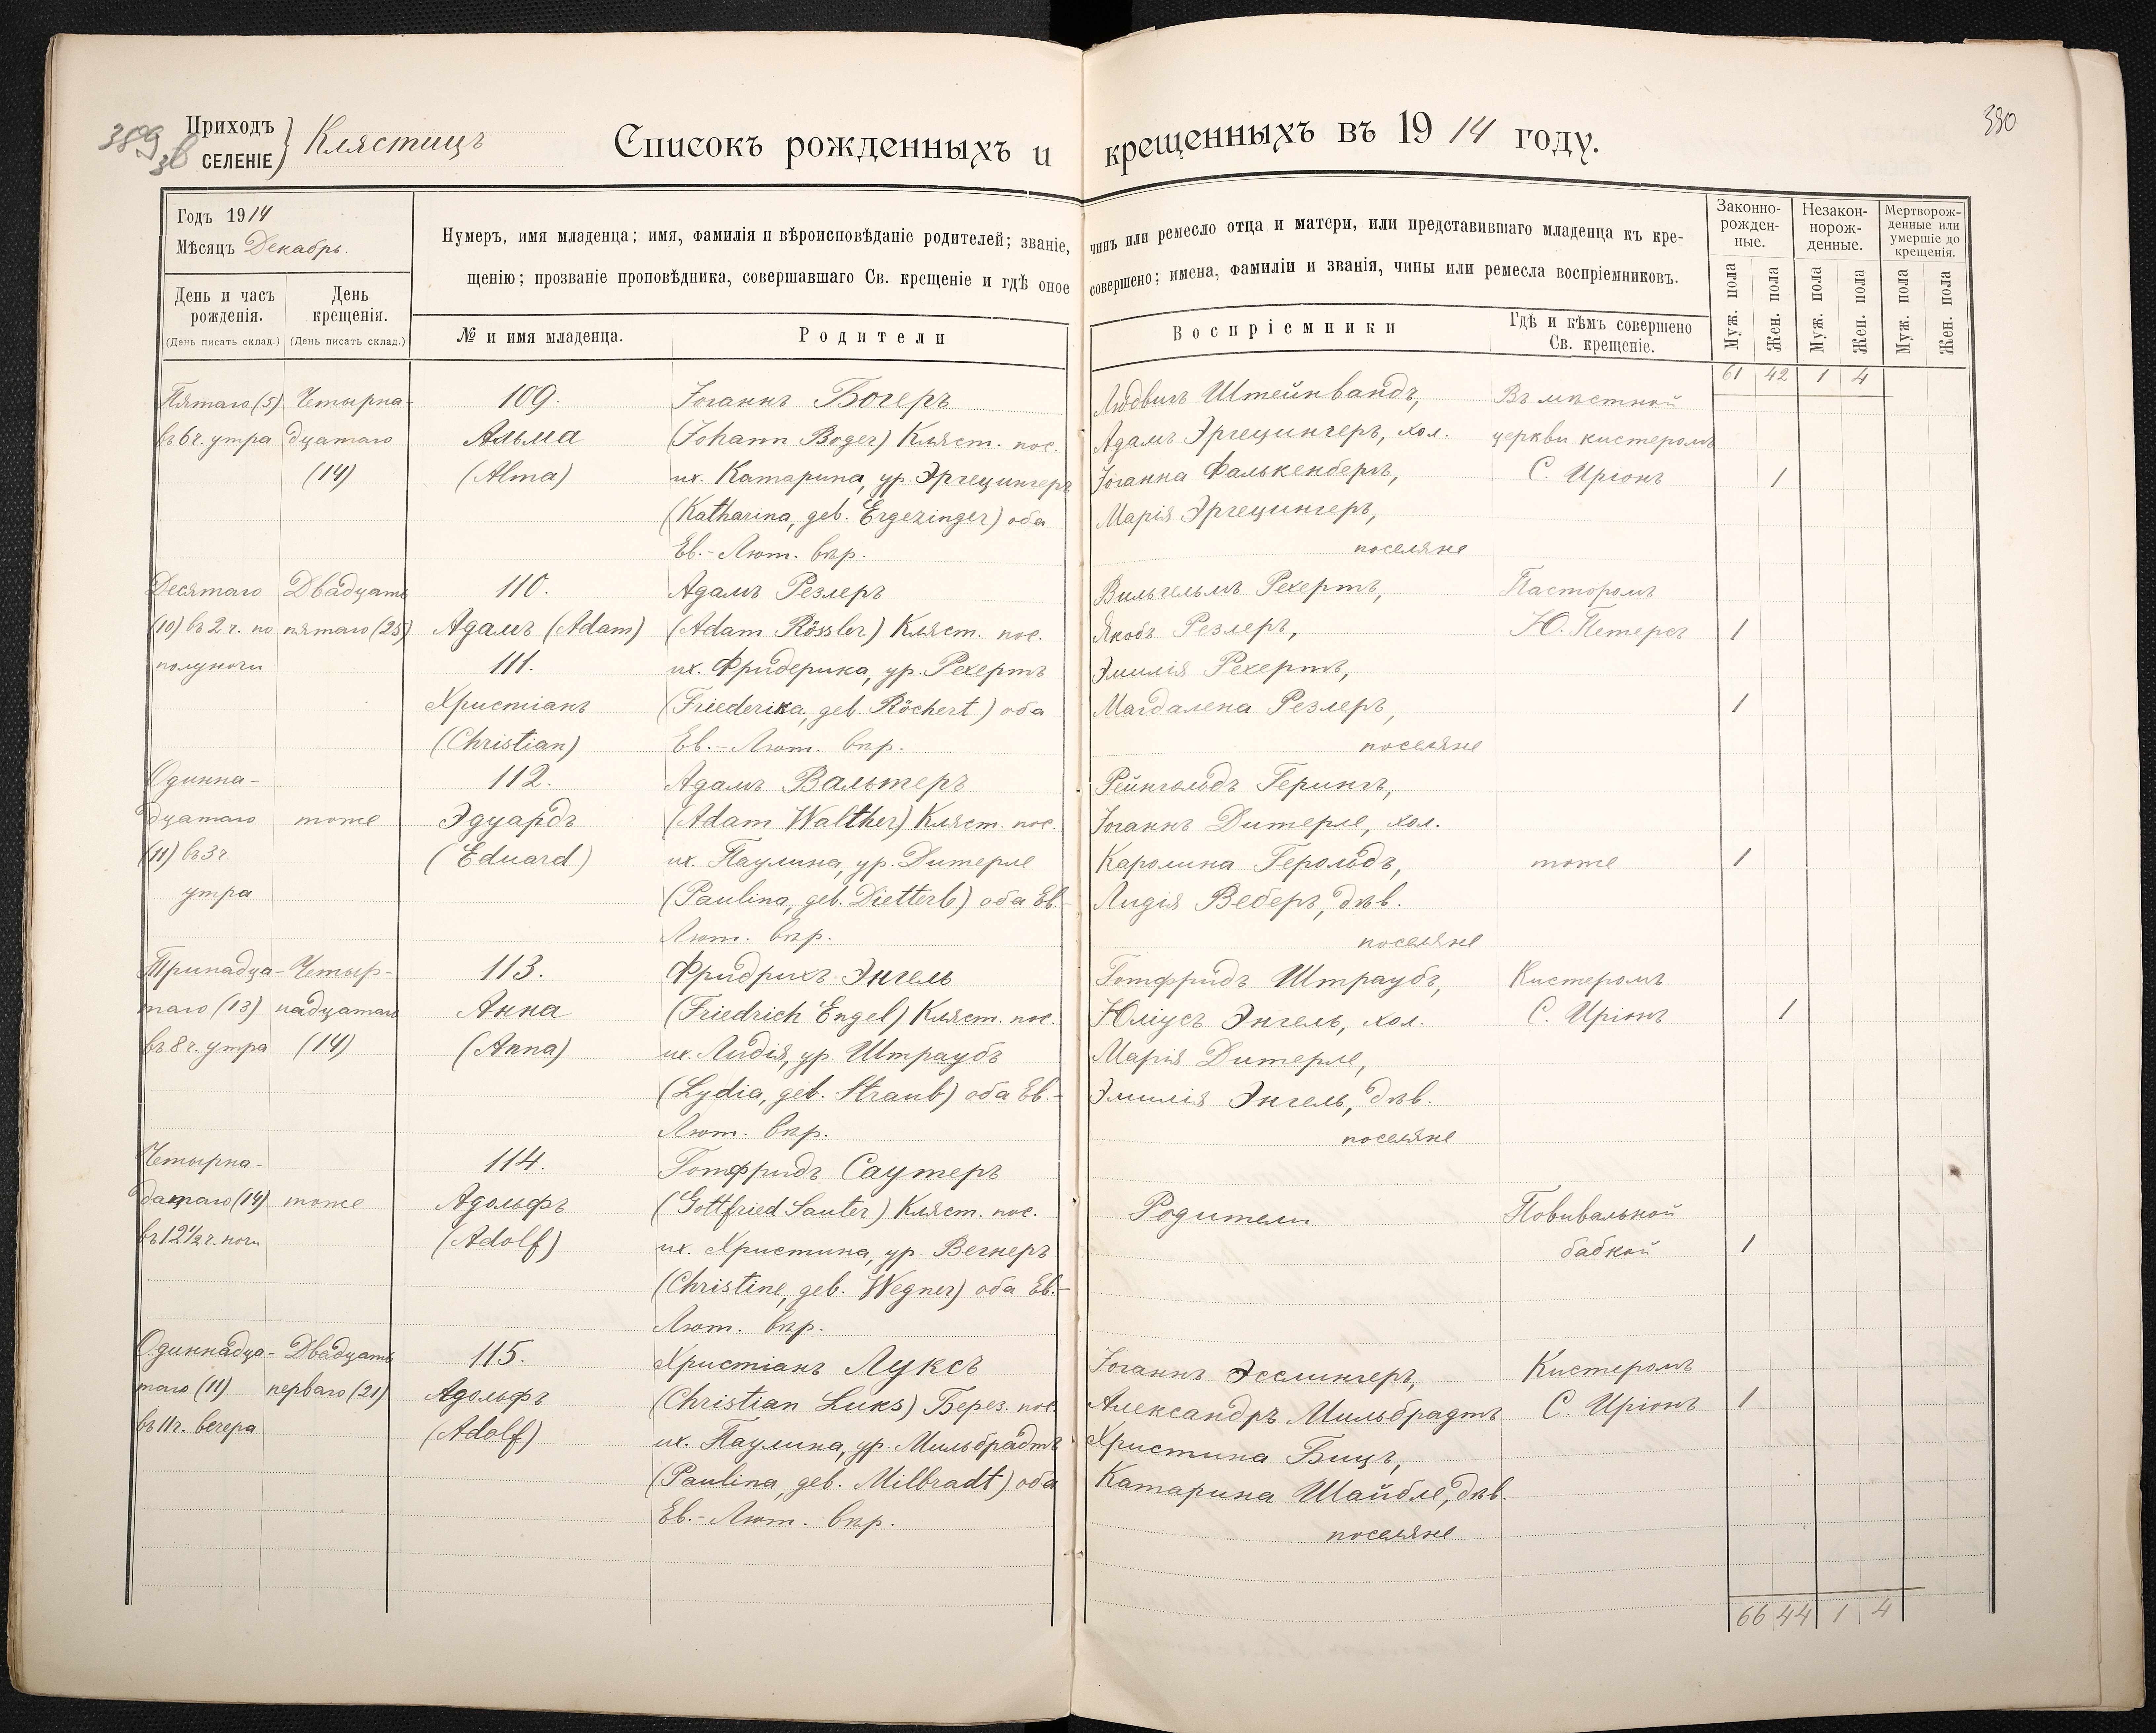 389 зв
Приходъ
СЕЛЕНІЕ
Клястицъ
Списокъ рожденныхъ и крещенныхъ въ 1914 году.
330
Годъ 1914
Мѣсяцъ Декабрь.
День и часъ рожденія.
(День писать склад.)
День крещенія.
(День писать склад.)
Нумеръ, имя младенца; имя, фамилія и вѣроисповѣданіе родителей; званіе, чинъ или ремесло отца и матери, или представившаго младенца къ кре-
щенію; прозваніе проповѣдника, совершавшаго Св. крещеніе и гдѣ оное совершено; имена, фамиліи и званія, чины или ремесла воспріемниковъ.
№ и имя младенца.
Родители
Воспріемники
Гдѣ и кѣмъ совершено
Св. крещеніе.
Законно-
рожден-
ные.
Незакон-
норож-
денные.
Мертворож-
денные или
умершіе до
крещенія.
Муж. пола
Жен. пола
Муж. пола
Жен. пола
Муж. пола
Жен. пола
61 42 1 4
Пятаго (5)
въ 6 ч. утра
Четырна-
дцатаго
(14)
109.
Альма
(Alma)
Іоганнъ Богеръ
(Johann Boger) Кляст. пос.
их. Катарина, ур. Эргецингеръ
(Katharina, geb. Ergezinger) оба
Ев.-Лют. вѣр.
Людвигъ Штейнвандъ,
Адамъ Эргецингеръ, хол.
Іоганна Фалькенбергъ,
Марія Эргецингеръ,
поселяне
Въ мѣстной
церкви кистеромъ
С. Иріонъ
1
Десятаго
(10) въ 2 ч. по
полуночи
Двадцать
пятаго (25)
110.
Адамъ (Adam)
111.
Христіанъ
(Christian)
Адамъ Резлеръ
(Adam Rössler) Кляст. пос.
их. Фридерика, ур. Рехертъ
(Friederika, geb. Röchert) оба
Ев.-Лют. вѣр.
Вильгельмъ Рехертъ,
Якобъ Резлеръ,
Эмилія Рехертъ,
Магдалена Резлеръ,
поселяне
Пасторомъ
Ю. Петерсъ
1
1
Одинна-
дцатаго
(11) въ 3 ч.
утра
тоже
112.
Эдуардъ
(Eduard)
Адамъ Вальтеръ
(Adam Walther) Кляст. пос.
их. Паулина, ур. Дитерле
(Paulina, geb. Dietterle) оба Ев.-
Лют. вѣр.
Рейнгольдъ Герингъ,
Іоганнъ Дитерле, хол.
Каролина Герольдъ,
Лидія Веберъ, дѣв.
поселяне
тоже
1
Тринадца-
таго (13)
въ 8 ч. утра
Четыр-
надцатаго
(14)
113.
Анна
(Anna)
Фридрихъ Энгель
(Friedrich Engel) Кляст. пос.
их. Лидія, ур. Штраубъ
(Lydia, geb. Straub) оба Ев.-
Лют. вѣр.
Готфридъ Штраубъ,
Юліусъ Энгель, хол.
Марія Дитерле,
Эмилія Энгель, дѣв.
поселяне
Кистеромъ
С. Иріонъ
1
Четырна-
дцатаго (14)
въ 12½ ч. ночи
тоже
114.
Адольфъ
(Adolf)
Готфридъ Саутеръ
(Gottfried Sauter) Кляст. пос.
их. Христина, ур. Вегнеръ
(Christine, geb. Wegner) оба Ев.-
Лют. вѣр.
Родители
Повивальной
бабкой
1
Одиннадца-
таго (11)
въ 11 ч. вечера
Двадцать
перваго (21)
115.
Адольфъ
(Adolf)
Христіанъ Луксъ
(Christian Luks) Берез. пос.
их. Паулина, ур. Мильбрадтъ
(Paulina, geb. Milbradt) оба
Ев.-Лют. вѣр.
Іоганнъ Эсслингеръ,
Александръ Мильбрадтъ
Христина Бицъ,
Катарина Шайбле, дѣв.
поселяне
Кистеромъ
С. Иріонъ
1
66 44 1 4